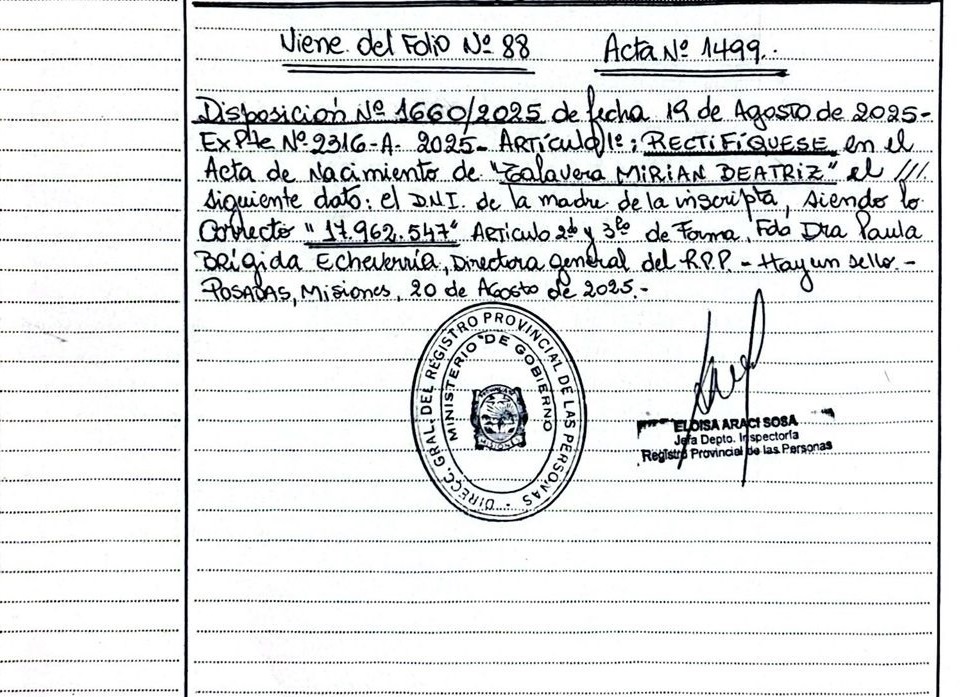 Viene del Folio Nº 88 Acta Nº 1499.-
Disposición Nº 1660/2025 de fecha 19 de Agosto de 2025-
Expte Nº 2316-A- 2025- Artículo 1º: RECTIFÍQUESE en el
Acta de Nacimiento de "Talavera MIRIAN BEATRIZ" el ///
siguiente dato: el D.N.I. de la madre de la inscripta, siendo lo
Correcto "17.962.547" Artículo 2do y 3ro de Forma. Fdo Dra Paula
BRÍGIDA ECHEVERRÍA, Directora general del R.P.P. - Hay un sello.-
POSADAS, Misiones, 20 de Agosto de 2025.-
DIRECC. GRAL. DEL REGISTRO PROVINCIAL DE LAS PERSONAS
MINISTERIO DE GOBIERNO
MISIONES
ELOISA ARACI SOSA
Jefa Depto. Inspectoría
Registro Provincial de las Personas